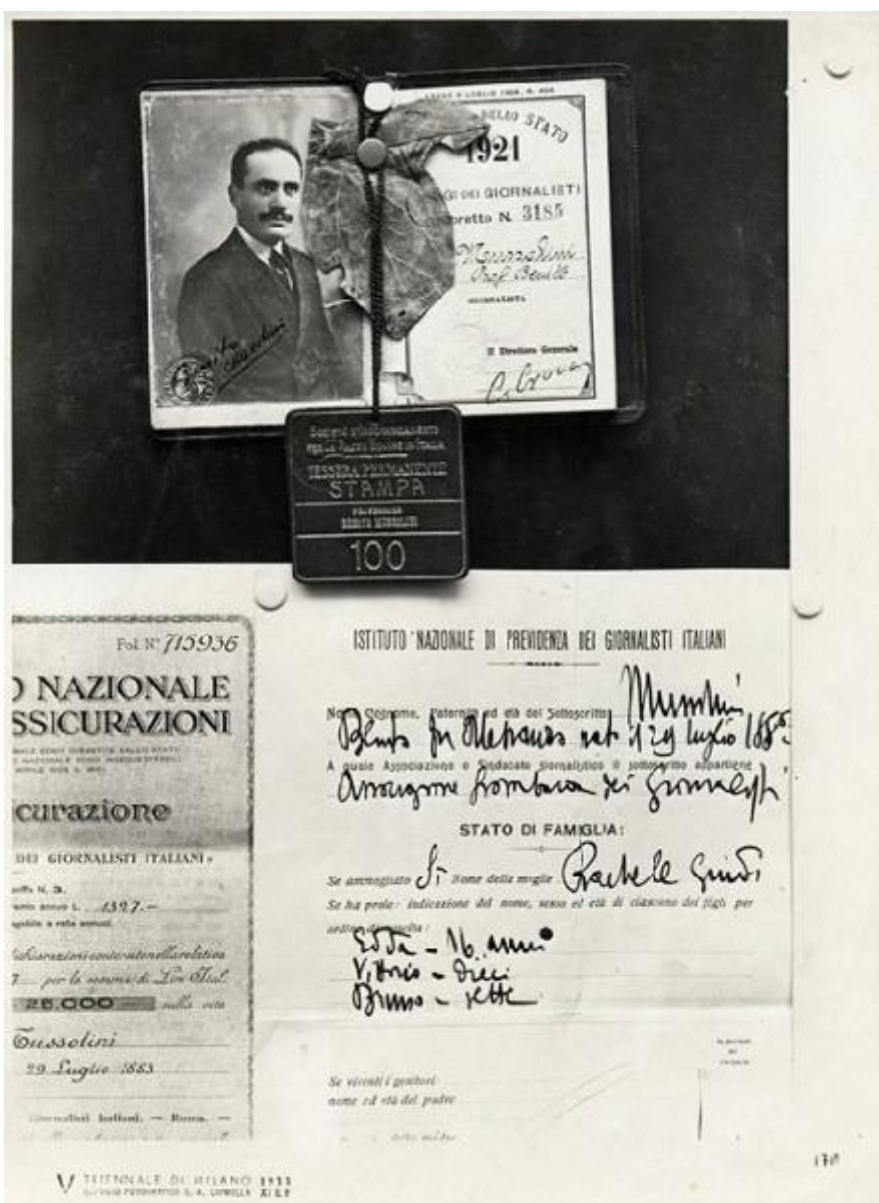 DELLO STATO
1921
GI DEI GIORNALISTI
bretto N. 3185
Mussolini
Prof. Benito
GIORNALISTA
Il Direttore Generale
Benito
Mussolini
SOCIETÀ D'INCORAGGIAMENTO
TESSERA PERMANENTE
STAMPA
BENITO MUSSOLINI
100
Pol. N° 715936
O NAZIONALE
SSICURAZIONI
curazione
DEI GIORNALISTI ITALIANI»
riffa N. 3.
annuo L. 1327.-
a rate annuali.
per la somma di Lire Ital.
25.000 sulla vita
Mussolini
29 Luglio 1883
Giornalisti Italiani. — Roma. —
ISTITUTO NAZIONALE DI PREVIDENZA DEI GIORNALISTI ITALIANI
Nome, Cognome, Paternità ed età del Sottoscritto Mussolini
Benito fu Alessandro nato il 29 luglio
A quale Associazione o Sindacato giornalistico il sottoscritto appartiene
Associazione Lombarda dei Giornalisti
STATO DI FAMIGLIA:
Se ammogliato Sì Nome della moglie Rachele Guidi
Se ha prole: indicazione del nome, sesso ed età di ciascuno dei figli per
ordine di nascita:
Edda - 16 anni
Vittorio - dieci
Bruno - sette
Se viventi i genitori:
nome ed età del padre
V TRIENNALE DI MILANO 1933
SERVIZIO FOTOGRAFICO S. A. CRIMELLA XI E.F.